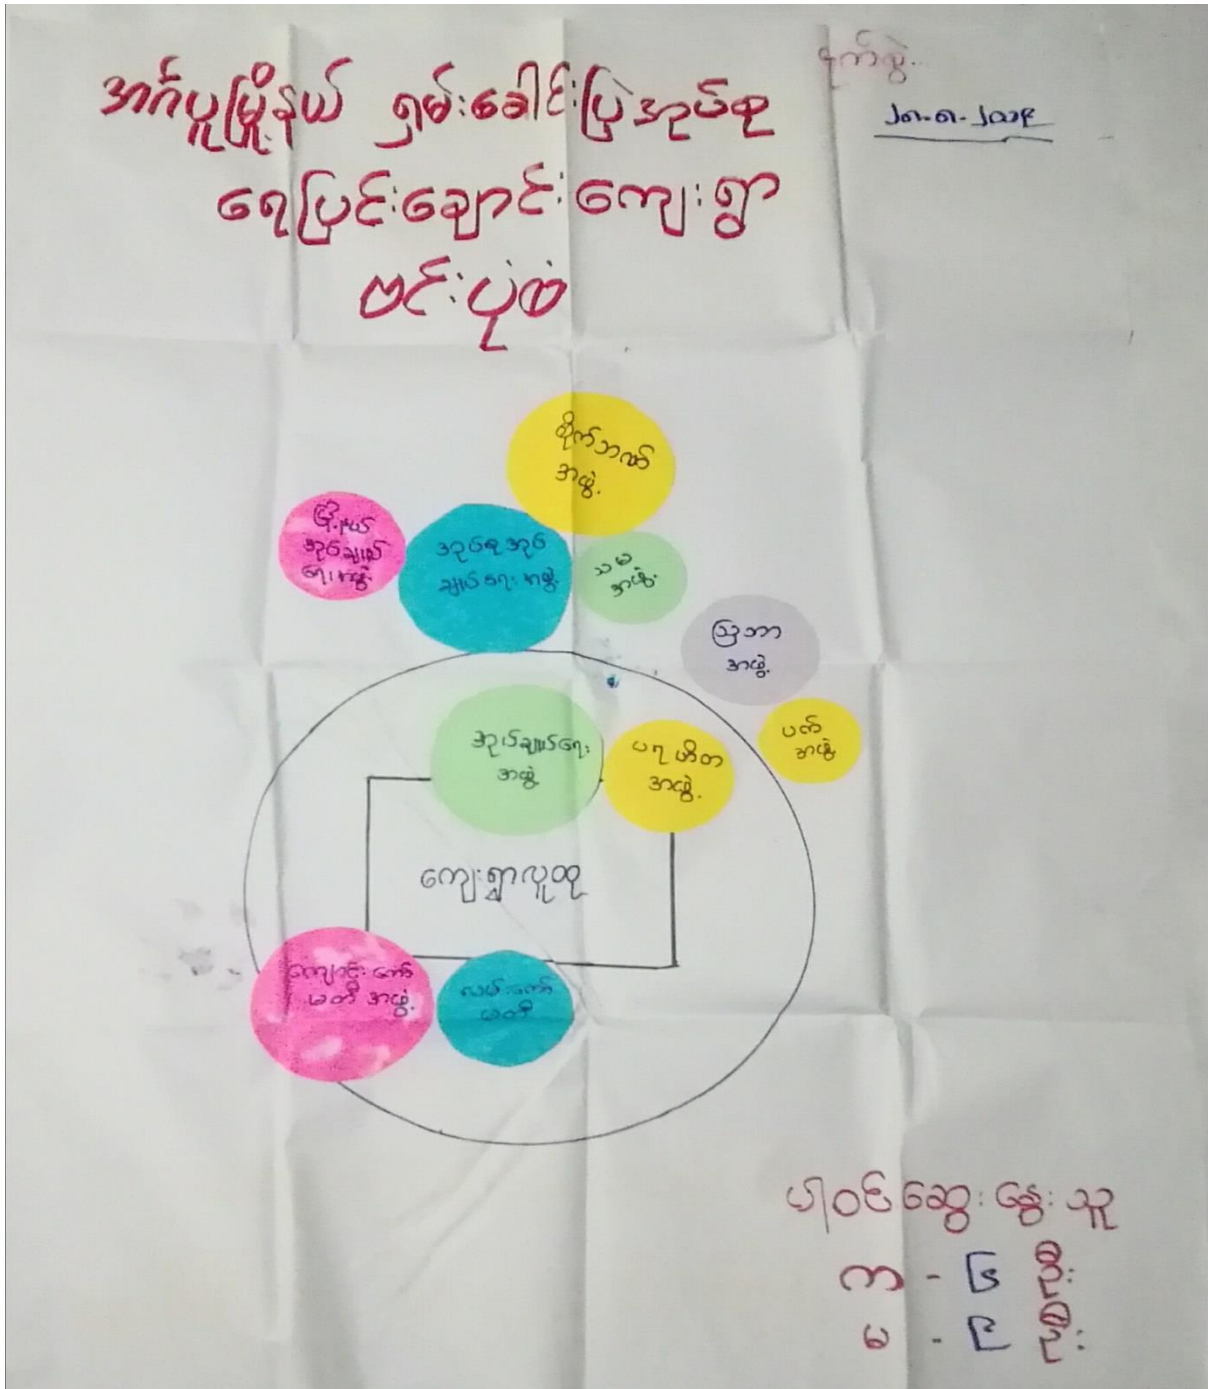 အင်္ဂပူမြို့နယ် ရှမ်းခေါင်းပြဲအုပ်စု
ရေပြင်းချောင်းကျေးရွာ
ဗင်းပုံစံ
စိုက်ဘဏ်
အဖွဲ့
မြို့နယ်
အုပ်ချုပ်
ရေးအဖွဲ့
အုပ်စုအုပ်
ချုပ်ရေးအဖွဲ့
သမ
အဖွဲ့
ဩဘာ
အဖွဲ့
ပက်
အဖွဲ့
အုပ်ချုပ်ရေး
အဖွဲ့
ပရဟိတ
အဖွဲ့
ကျေးရွာလူထု
ကျောင်းကော်
မတီအဖွဲ့
လမ်းကော်
မတီ
ပါဝင်ဆွေးနွေးသူ
ကျာ - ၆ ဦး
မ - ၉ ဦး